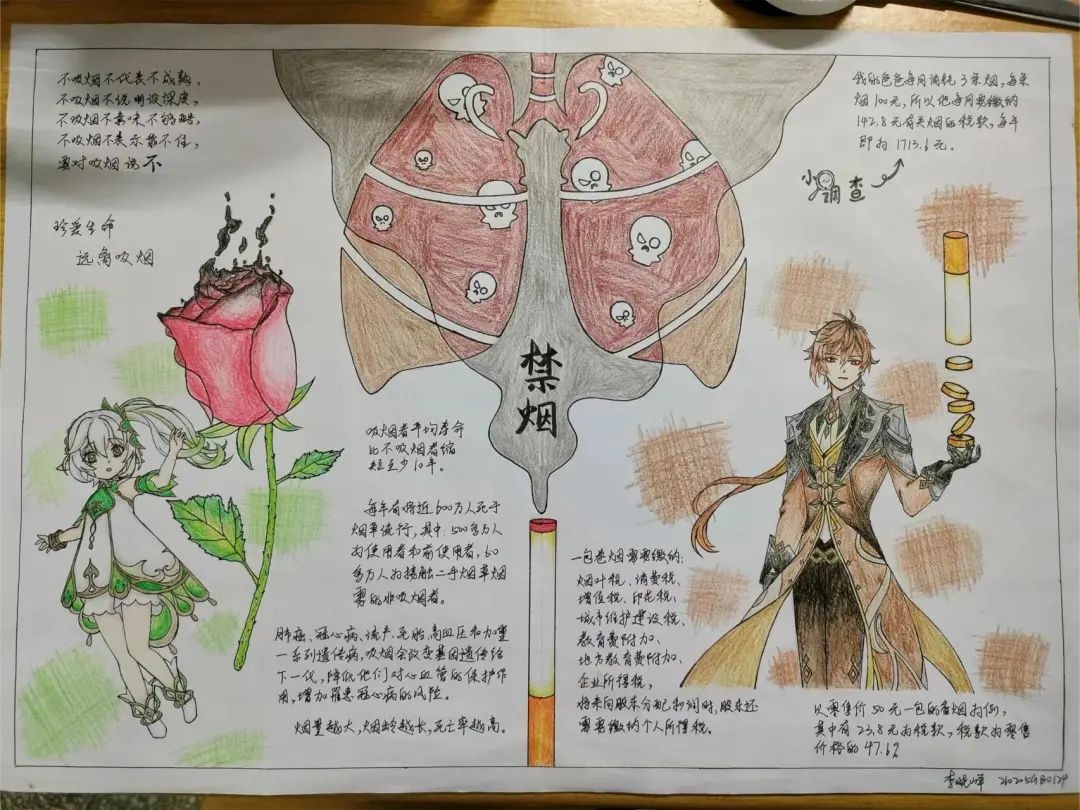 不吸烟不代表不成熟，
不吸烟不说明没深度，
不吸烟不意味不够酷，
不吸烟不表示靠不住，
要对吸烟说不
珍爱生命
远离吸烟
禁
烟
我的爸爸每月消耗3条烟，每条
烟100元，所以他每月要缴纳
142.8元有关烟的税款，每年
即为1713.6元。
小调查
吸烟者平均寿命
比不吸烟者缩
短至少10年。
每年有将近600万人死于
烟草流行，其中：500多万人
为使用者和前使用者，60
多万人为接触二手烟草烟
雾的非吸烟者。
肺癌、冠心病、流产、死胎、高血压和加重
一系列遗传病，吸烟会改变基因遗传给
下一代，降低他们对心血管的保护作
用，增加罹患冠心病的风险。
烟量越大，烟龄越长，死亡率越高。
一包卷烟需要缴纳：
烟叶税、消费税、
增值税、印花税、
城市维护建设税、
教育费附加、
地方教育费附加、
企业所得税，
将来向股东分配利润时，股东还
需要缴纳个人所得税。
以零售价50元一包的香烟为例，
其中有23.8元为税款，税款为零售
价格的47.6%
李晓峰